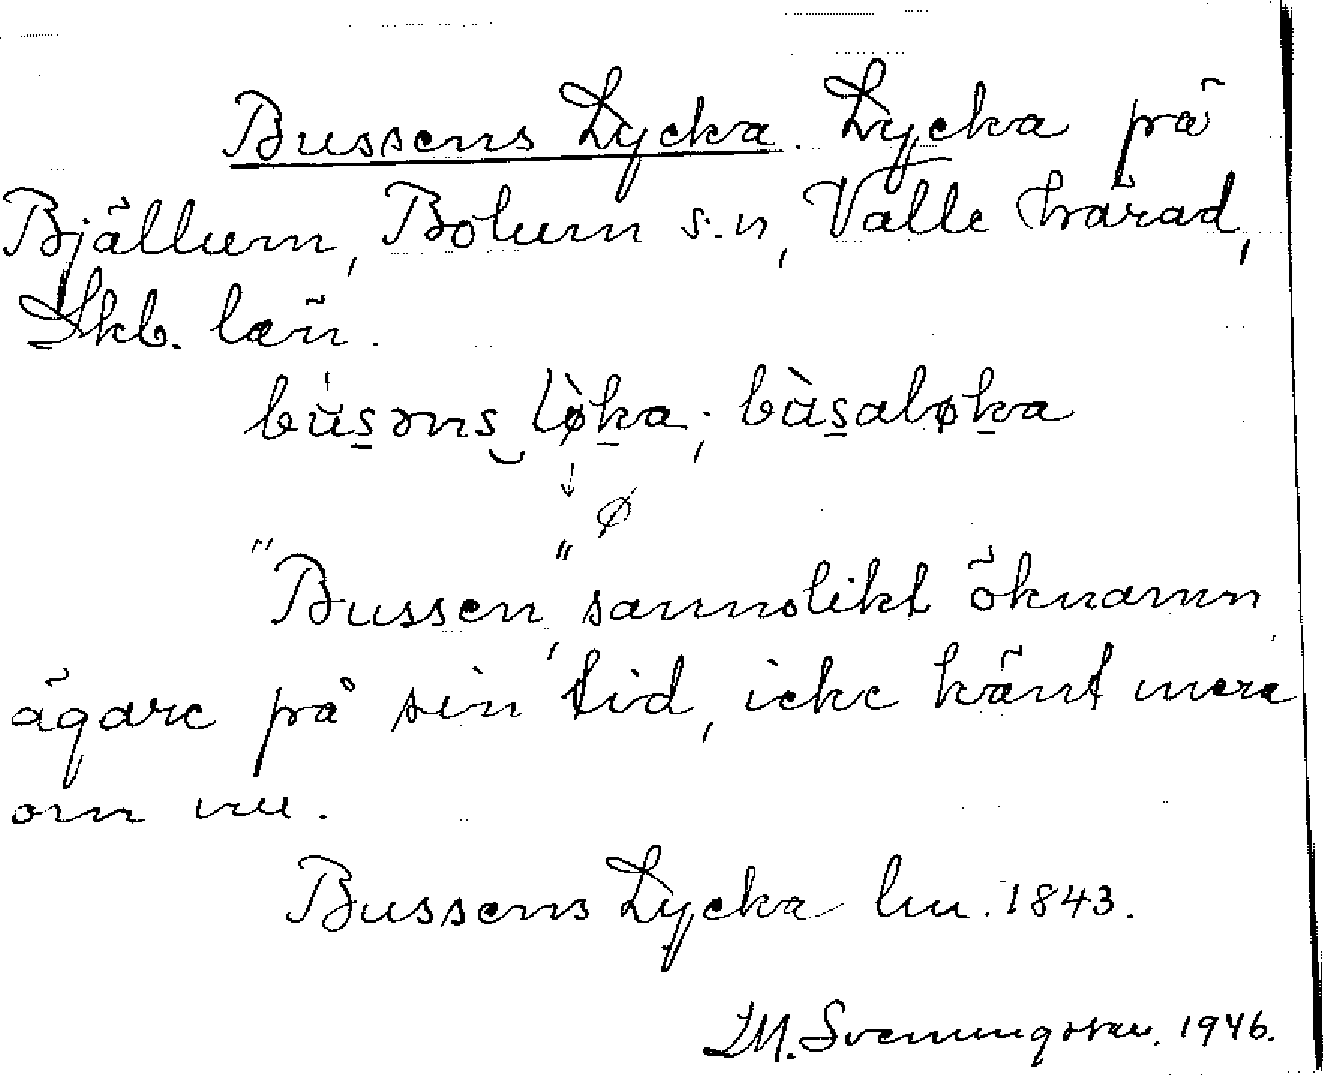 Bussens Lycka. Lycka på
Bjällum, Bolum s:n, Valle härad,
Skb. län.
bu̇s̲əns‿lø̀k̲a; bùs̲aløk̲a
↓ ø
"Bussen", sannolikt öknamn
ägare på sin tid, icke känt mera
om nu.
Bussens Lycka hu. 1843.
I.M. Svenningsson. 1946.